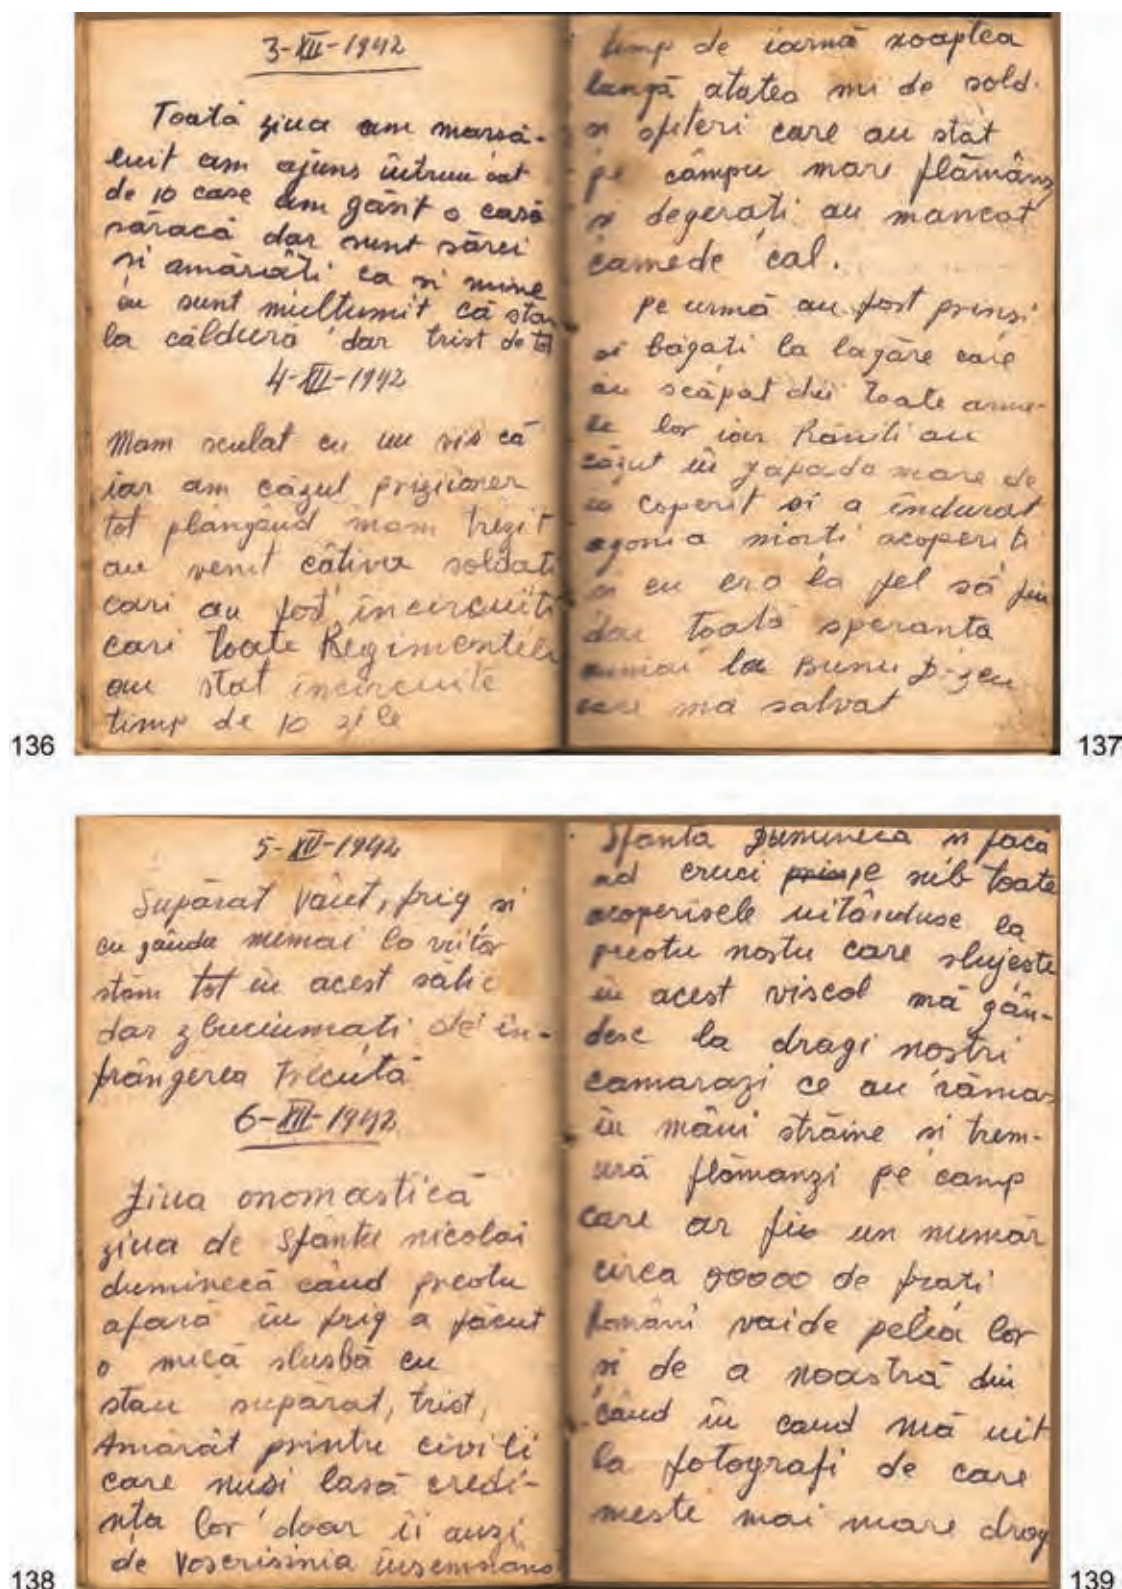 3-XII-1942
Toată ziua am marsă-
luit am ajuns întrun sat
de 10 case am găsit o casă
săracă dar sunt săraci
si amărâti ca si mine
eu sunt multumit că stau
la căldură dar trist de tot
4-XII-1942
Mam sculat cu un vis că
iar am căzut prizioner
tot plângând mam trezit
au venit câtiva soldati
cari au fost incercuiti
cari toate Regimentele
au stat incercuite
timp de 10 zile
136
timp de iarnă noaptea
langă atatea mi de sold.
si ofiteri care au stat
pe câmpu mare flămânz
si degerati au mancat
carnede cal.
pe urmă au fost prinsi
si băgati la lagăre care
au scăpat din toate arme-
le lor iar Răniti au
căzut in zăpada mare de
ia coperit si a indurat
agonia morti acoperiti
si eu era la fel să fiu
dar toată speranta
numai la Bunu D-zeu
care ma salvat
137
5-XII-1942
Supărat Vânt, frig si
cu gându numai la viitor
stăm tot in acest sătic
dar zbuciumati de in-
frângerea trecută
6-XII-1942
Ziua onomastică
ziua de Sfântu nicolai
duminecă când preotu
afară in frig a făcut
o mică slusbă eu
stau supărat, trist,
Amărât printre civili
care nusi lasă credi-
nta lor doar ii auzi
de Voscrisinia insemnand
138
Sfanta Dumineca si facă
nd cruci pe sub toate
acoperisele uitânduse la
preotu nostu care slujeste
in acest viscol mă gân-
desc la dragi nostri
camarazi ce au rămas
in mâini străine si trem-
ură flămanzi pe camp
care ar fi un număr
circa de frati
Români vaide pelea lor
si de a noastră din
când in cand mă uit
la fotografi de care
meste mai mare drag
139